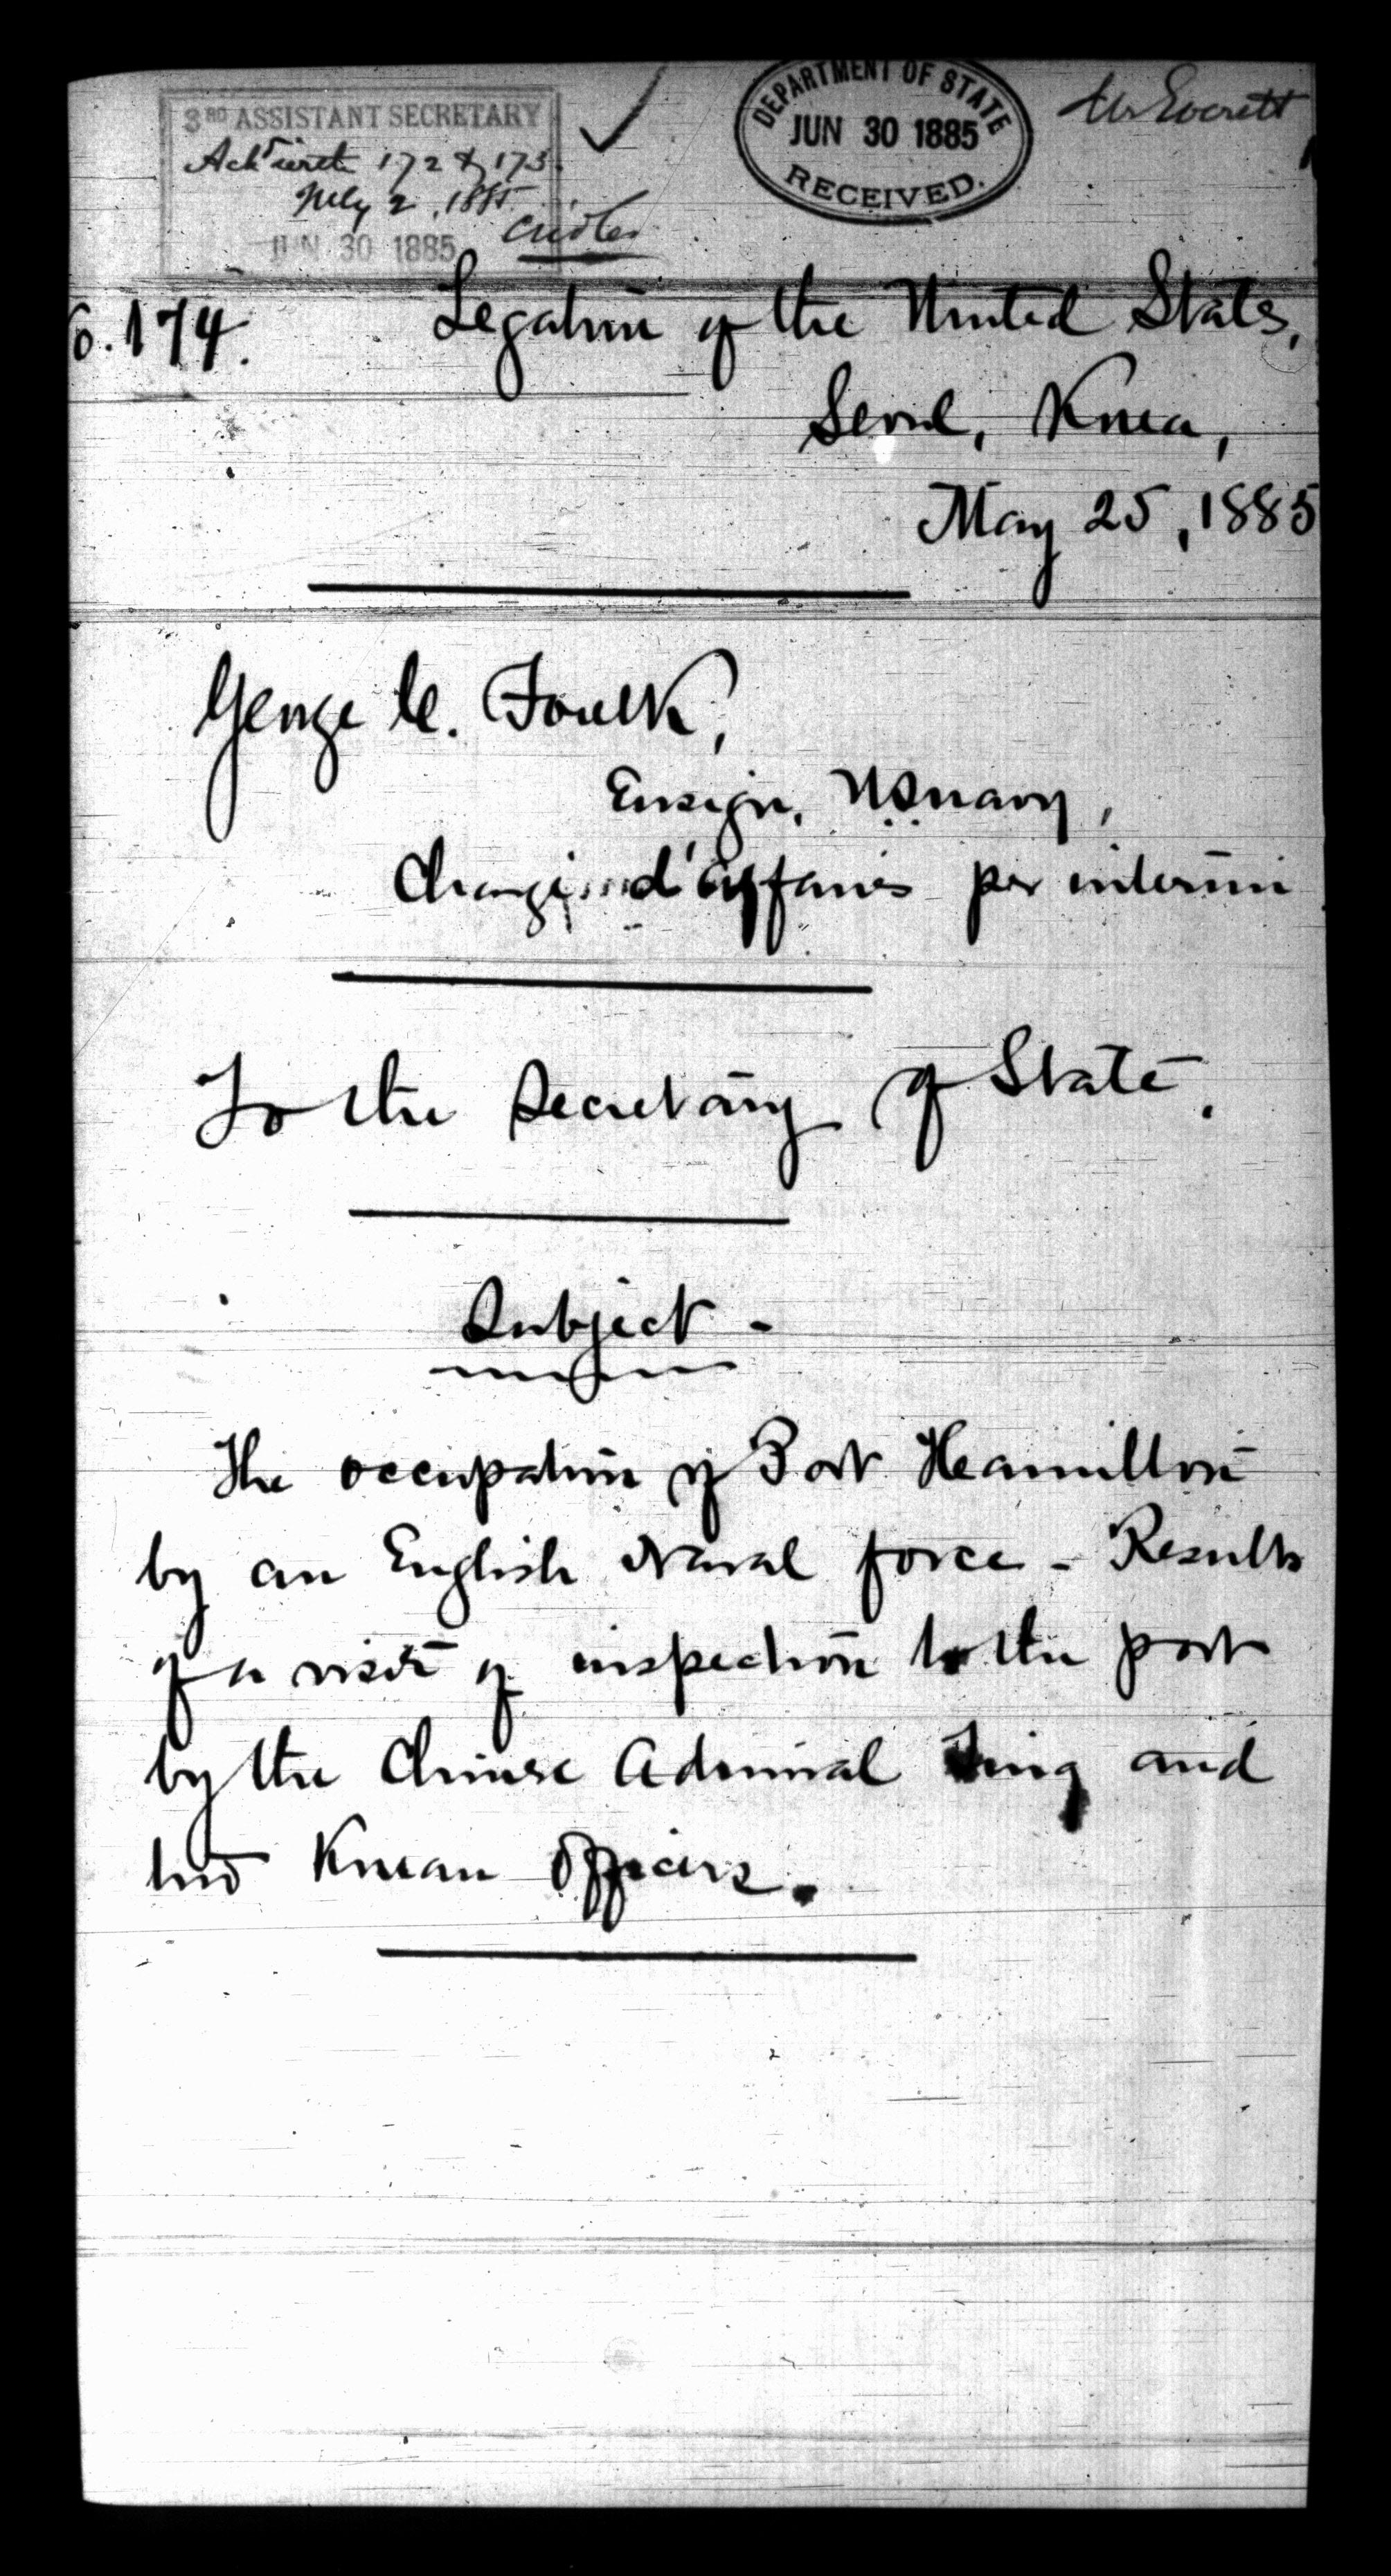 3RD ASSISTANT SECRETARY
Ackd with 172 & 173.
July 2, 1885.
JUN 30 1885
Cridler
DEPARTMENT OF STATE
JUN 30 1885
RECEIVED.
Mr Everett
o. 174.
Legation of the United States,
Seoul, Korea,
May 25, 1885
George C. Foulk,
Ensign, U.S. Navy,
Chargé d'affaires per interim
To the Secretary of State.
Subject -
The occupation of Port Hamilton
by an English Naval force - Results
of a visit of inspection to the port
by the Chinese Admiral Ting and
two Korean Officers.